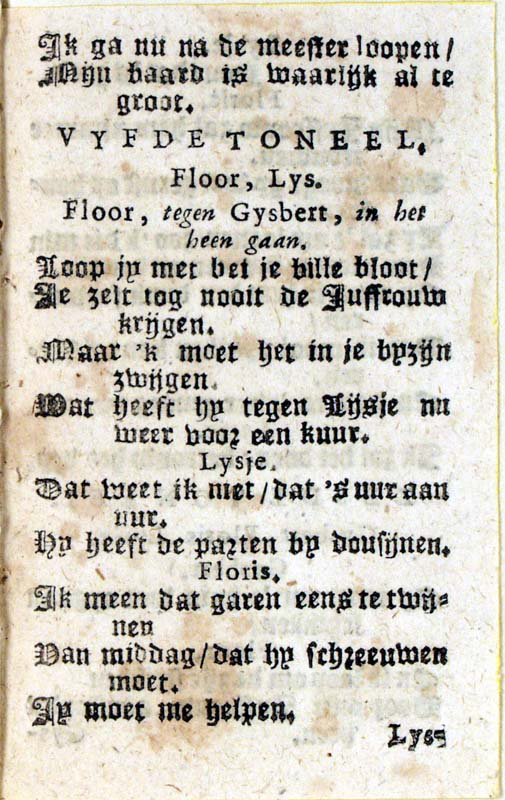 Ik ga nu na de meester loopen/
Mijn baard is waarlijk al te
groot.
VYFDE TONEEL.
Floor, Lys.
Floor, tegen Gysbert, in het
heen gaan.
Loop jy met bei je bille bloot/
Je zelt tog nooit de Juffrouw
krijgen.
Maar 'k moet het in je byzijn
zwijgen.
Wat heeft hy tegen Lijsje nu
weer voor een kuur.
Lysje.
Dat weet ik niet/dat 's uur aan
uur.
Hy heeft de parten by dousijnen.
Floris.
Ik meen dat garen eens te twij-
nen
Van middag/dat hy schreeuwen
moet.
Jy moet me helpen.
Lys-